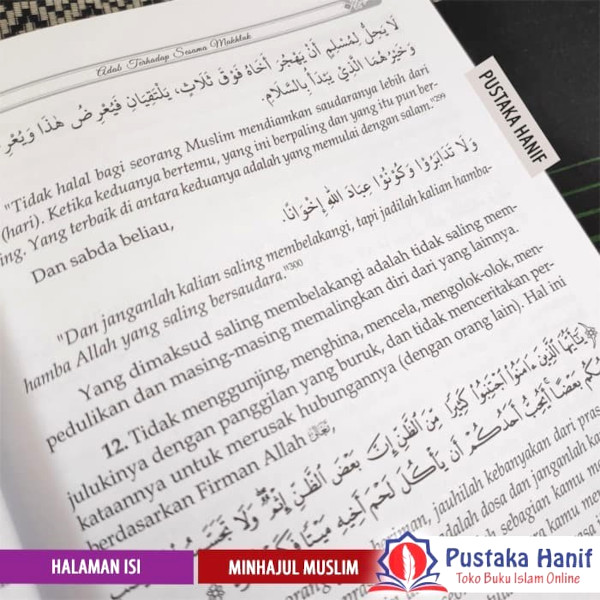 Adab Terhadap Sesama Makhluk
لَا يَحِلُّ لِمُسْلِمٍ أَنْ يَهْجُرَ أَخَاهُ فَوْقَ ثَلَاثٍ، يَلْتَقِيَانِ فَيُعْرِضُ هٰذَا وَيُعْرِ
وَخَيْرُهُمَا الَّذِي يَبْدَأُ بِالسَّلَامِ.
"Tidak halal bagi seorang Muslim mendiamkan saudaranya lebih dari
(hari). Ketika keduanya bertemu, yang ini berpaling dan yang itu pun ber-
ing. Yang terbaik di antara keduanya adalah yang memulai dengan salam."299
Dan sabda beliau,
وَلَا تَدَابَرُوْا وَكُوْنُوْا عِبَادَ اللّٰهِ إِخْوَانًا.
"Dan janganlah kalian saling membelakangi, tapi jadilah kalian hamba-
hamba Allah yang saling bersaudara."300
Yang dimaksud saling membelakangi adalah tidak saling mem-
pedulikan dan masing-masing memalingkan diri dari yang lainnya.
12. Tidak menggunjing, menghina, mencela, mengolok-olok, men-
julukinya dengan panggilan yang buruk, dan tidak menceritakan per-
kataannya untuk merusak hubungannya (dengan orang lain). Hal ini
berdasarkan Firman Allah
يَٰٓأَيُّهَا ٱلَّذِينَ ءَامَنُوا۟ ٱجْتَنِبُوا۟ كَثِيرًا مِّنَ ٱلظَّنِّ إِنَّ بَعْضَ ٱلظَّنِّ إِثْمٌ وَلَا
بَعْضًا أَيُحِبُّ أَحَدُكُمْ أَن يَأْكُلَ لَحْمَ أَخِيهِ مَيْتًا
jauhilah kebanyakan dari pras
adalah dosa dan janganlah ka
sebagian kamu me
kamu
PUSTAKA HANIF
HALAMAN ISI
MINHAJUL MUSLIM
Pustaka Hanif
Toko Buku Islam Online